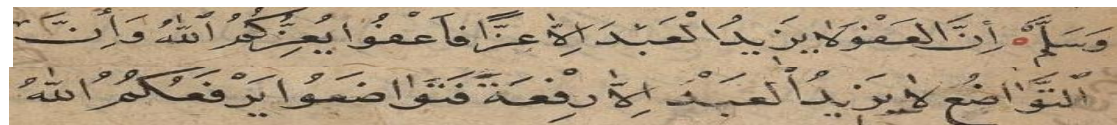 وَسَلَّمَ ۞ أَنَّ الْعَفْوَ لَا يَزِيدُ الْعَبْدَ إِلَّا عِزًّا فَاعْفُوا يُعِزَّكُمُ اللّٰهُ وَأَنَّ
التَّوَاضُعَ لَا يَزِيدُ الْعَبْدَ إِلَّا رِفْعَةً فَتَوَاضَعُوا يَرْفَعْكُمُ اللّٰهُ